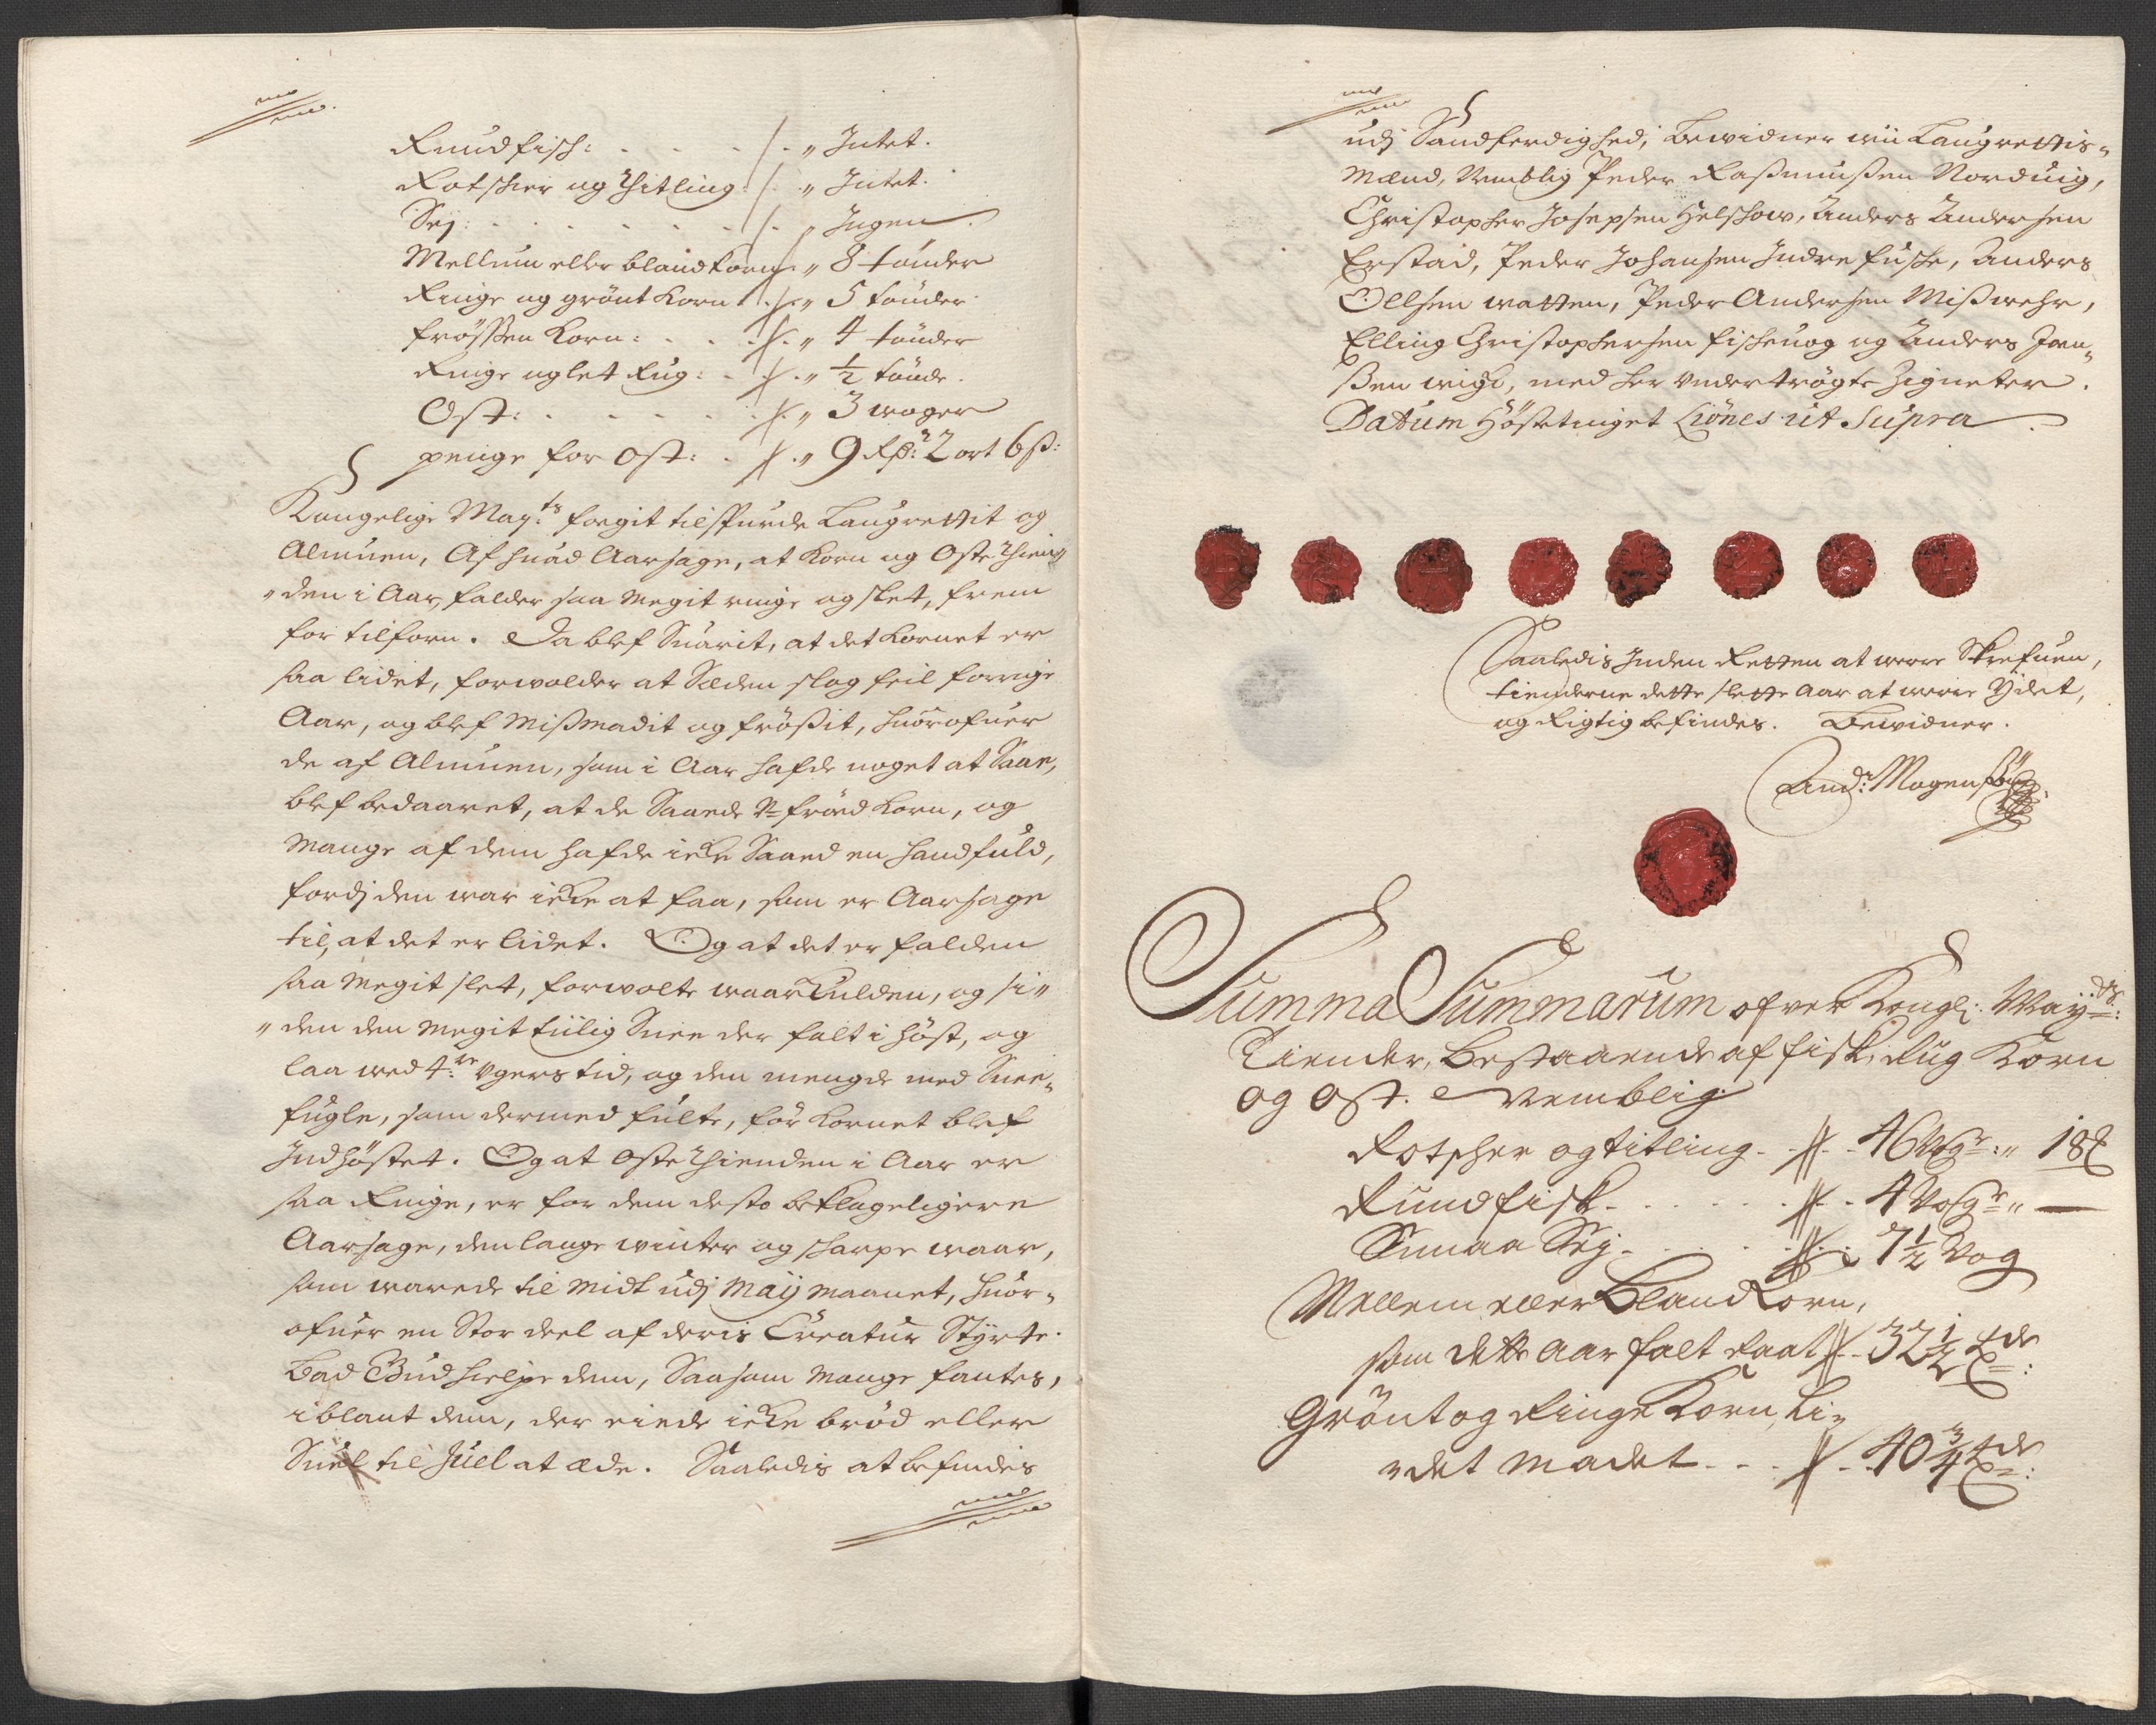 Rundfisch: . . . . /. „ Intet.
Rotscher og Thitling: /. „ Intet.
Sej: . . . . . . /. „ Ingen.
Mellum eller bland korn /. „ 8 tønder
Ringe og grønt Korn /. „ 5 tønder.
frøssen Korn: . . . /. „ 4 tønder
Ringe og let Rug: . /. „ ½ tønde.
Ost: . . . . . . /. „ 3 woger
penge for Ost: . /. „ 9 Rß: 2 ort 6 ß:
Kongelige May:ts fogit tilspurde Laugrettit og
Almuen, Af huad Aarsage, at Korn og Oste Thien„
„den i Aar falder saa megit ringe og slet, frem
for tilforn. Da blef Suarit, at det Kornet er
saa lidet, forwolder at Sæden slog feil forrige
Aar, og blef Mißmadit og frößit, huorofuer
de af Almuen, som i Aar hafde noget at Saae,
blef bedaaret, at de Saaede U-frøed Korn, og
mange af dem hafde icke Saaed en haandfuld,
fordj den war icke at faa, som er Aarsage
til, at det er lidet. Og at det er falden
saa megit slet, forwolte waar Kulden, og si„
„den den megit tiilig Snee der falt i høst, og
laa wed 4:re Ugers tid, og den mengde med Snee„
fugle, som dermed fulte, før Kornet blef
Indhøstet. Og at Oste Thienden i Aar er
saa Ringe, er for dem desto beklageligere
Aarsage, den lange winter og skarpe waar,
som warede til midt udj Maij maanet, huor„
ofuer en Stor deel af deris Creatur Styrte.
Bad Gud hielpe dem, Saasom mange fantes,
iblant dem, der eiede icke brød eller
Suel til Juel at æde. Saaledis at befindes
udj Sandferdighed, Bewidner wii Laugrettis„
Mænd, Nemblig Peder Raßmußen Norduig,
Christopher Josepsen Helschow, Anders Andersen
Erstad, Peder Johansen Indre fuske, Anders
Ollsen watten, Peder Andersen Mißwehr,
Elling Christophersen fischeuog og Anders Jon„
ßen wigh, med her undertrøgte Zigneter.
Datum Høstetinget Liönes ut Supra
Saaledis Inden Retten at were Skrefuen,
tienderne dette slette Aar at were Ydet,
og Rigtig befindes. Bewidner.
And: Mogenß
Summa Summarum ofver Kongl: Maij:ts
Tiender, Bestaaende af fisk, Rug Korn
og Ost. Nemblig
Rotscher og titling - // - 46 Wogr: „ 18 ℔
Rundfisk - . . . . // - 4 Wogr „ —
Smaa Sej - . . . // - 7½ Wog
Mellem eller Bland Korn,
som dette Aar falt Raat // - 32½ Tde
Grønt og Ringe Korn, Li„
„det madet - - . // - 40¾ Tde: